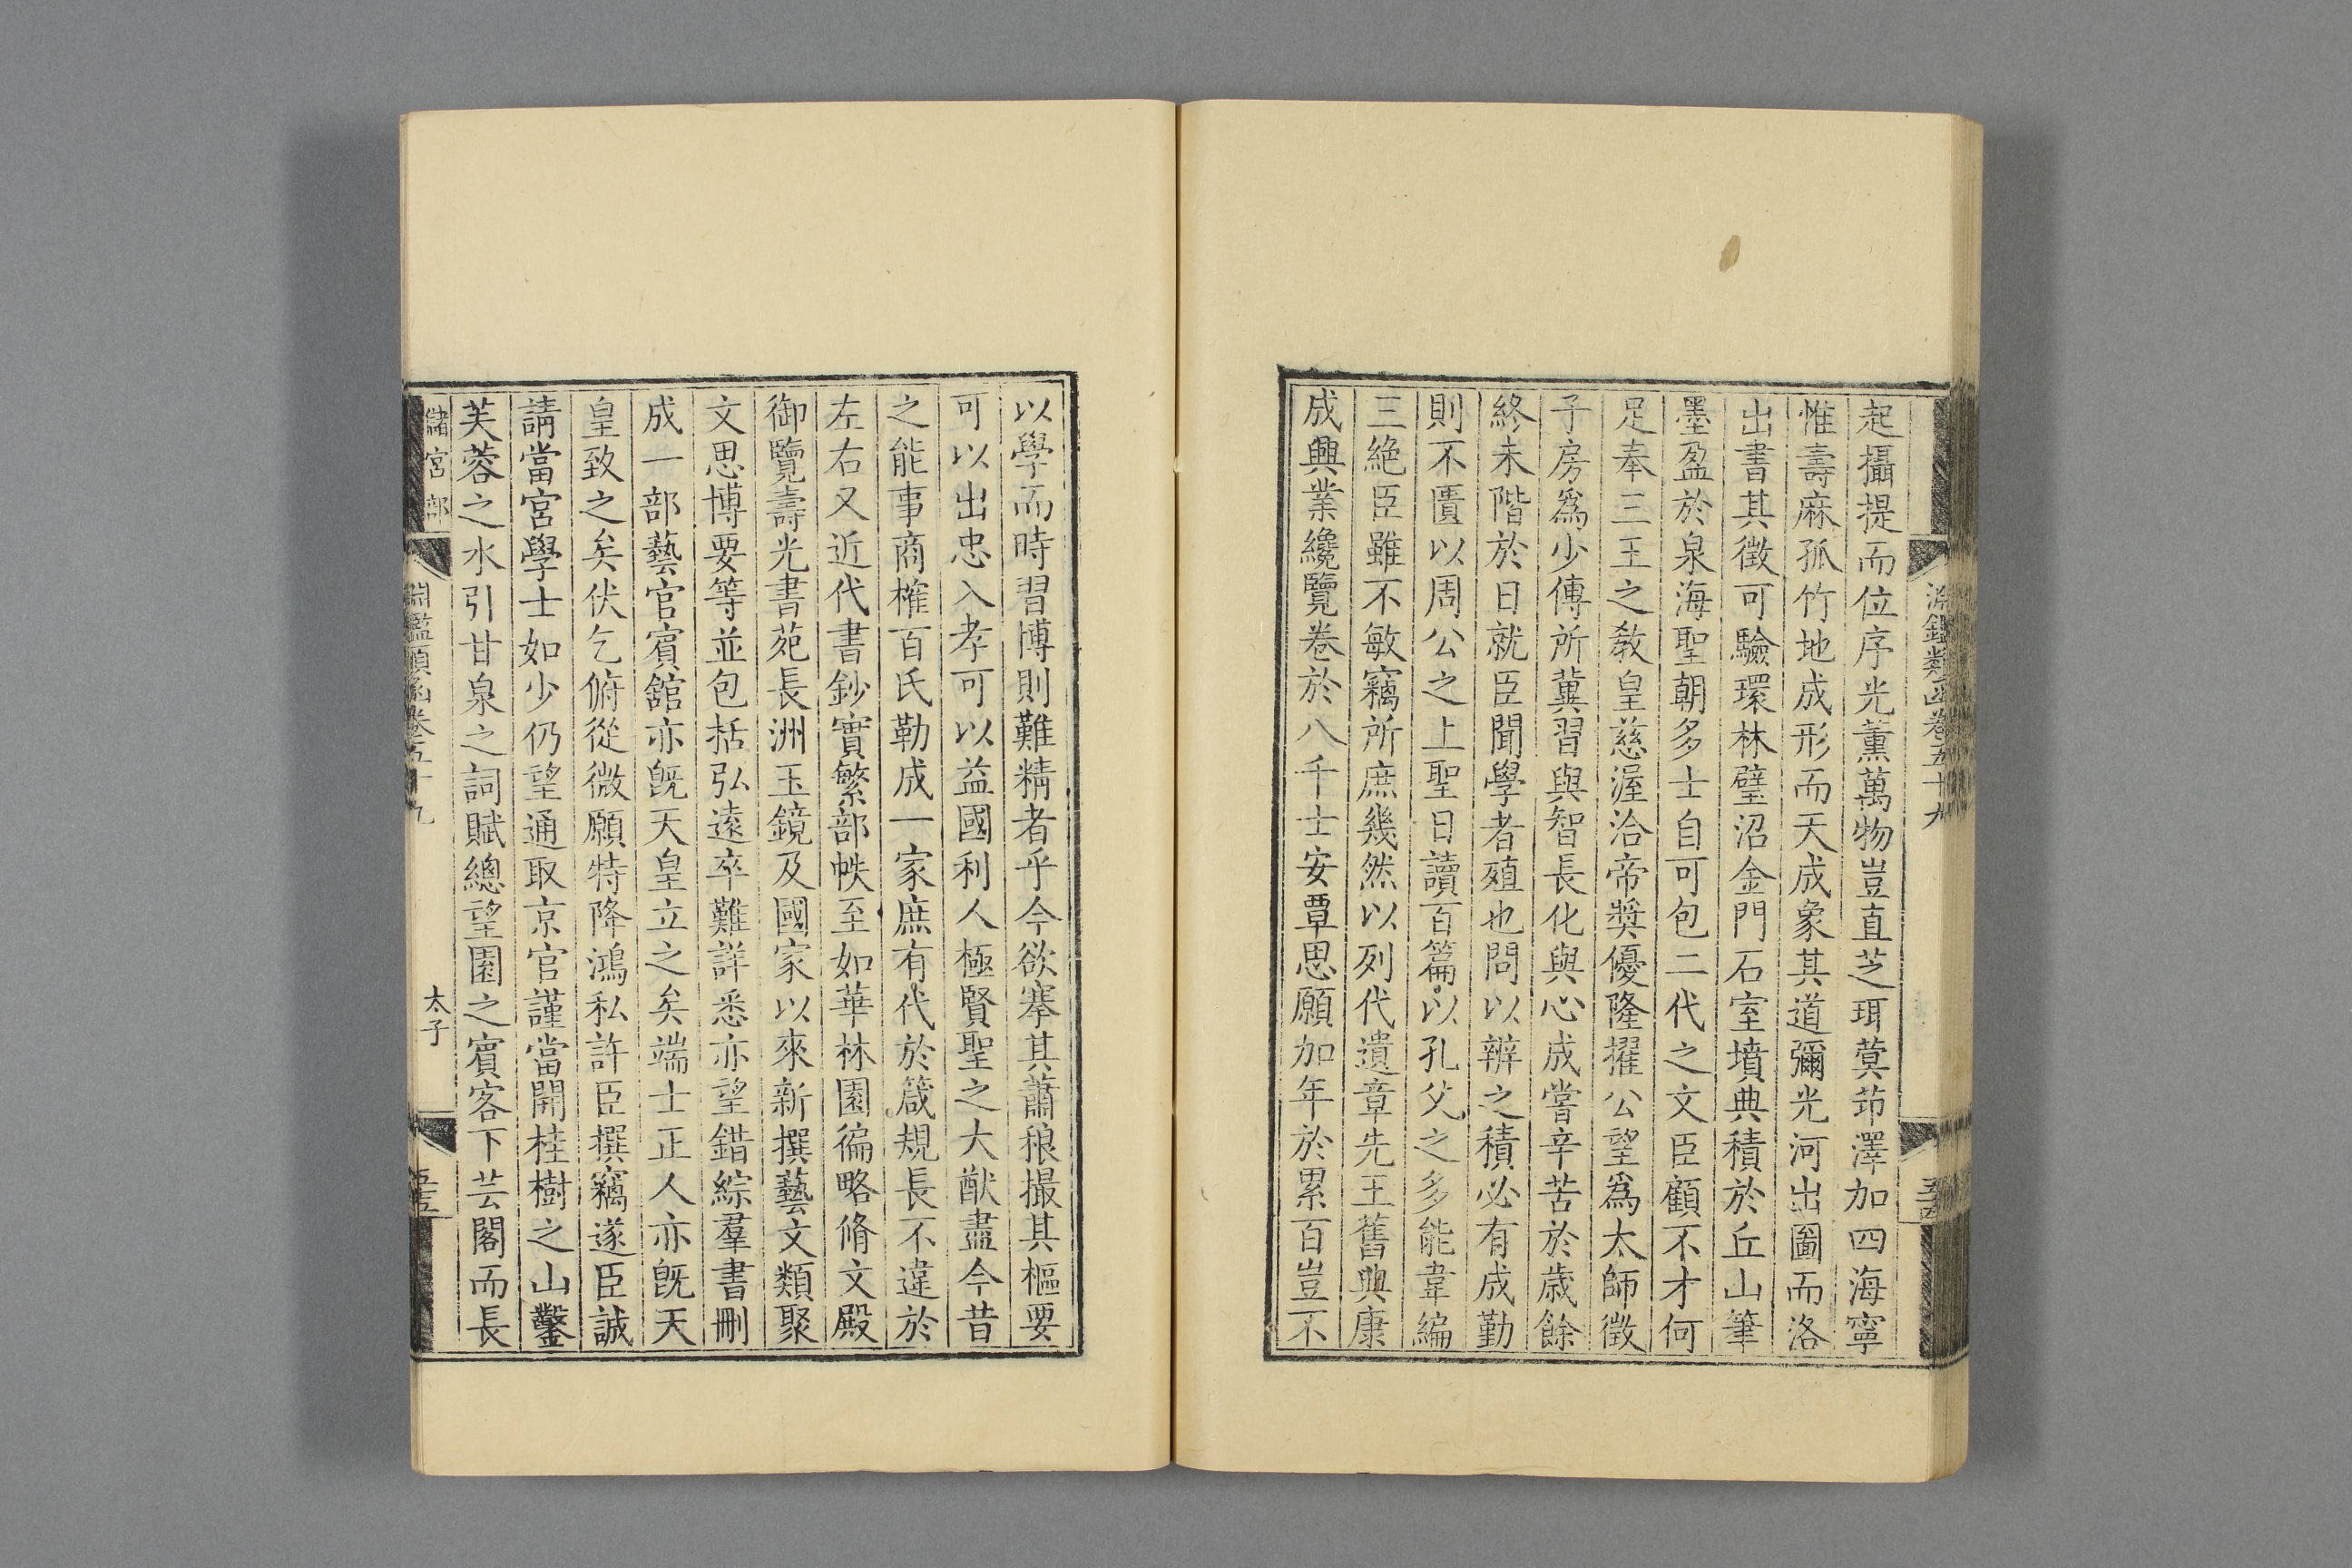 淵鑑類函卷五十九
起攝提而位序光薰萬物豈直芝珥蓂茆澤加四海寧
惟壽麻孤竹地成形而天成象其道彌光河出圖而洛
出書其徵可驗環林璧沼金門石室墳典積於丘山筆
墨盈於泉海聖朝多士自可包二代之文臣顧不才何
足奉三王之敎皇慈渥洽帝奬優隆擢公望爲太師徵
子房爲少傅所冀習與智長化與心成嘗辛苦於歲餘
終未階於日就臣聞學者殖也問以辨之積必有成勤
則不匱以周公之上聖日讀百篇以孔父之多能韋編
三絶臣雖不敏竊所庶幾然以列代遺章先王舊典康
成興業纔覽卷於八千士安覃思願加年於累百豈不
以學而時習博則難精者乎今欲搴其蕭稂撮其樞要
可以出忠入孝可以益國利人極賢聖之大猷盡今昔
之能事商榷百氏勒成一家庶有代於箴規長不違於
左右又近代書鈔實繁部帙至如華林園徧略脩文殿
御覽壽光書苑長洲玉鏡及國家以來新撰藝文類聚
文思博要等並包括弘遠卒難詳悉亦望錯綜羣書刪
成一部藝官賓舘亦旣天皇立之矣端士正人亦旣天
皇致之矣伏乞俯從微願特降鴻私許臣撰竊遂臣誠
請當宮學士如少仍望通取京官謹當開桂樹之山鑿
芙蓉之水引甘泉之詞賦總望園之賓客下芸閣而長
儲宮部
淵鑑類函卷五十九
太子